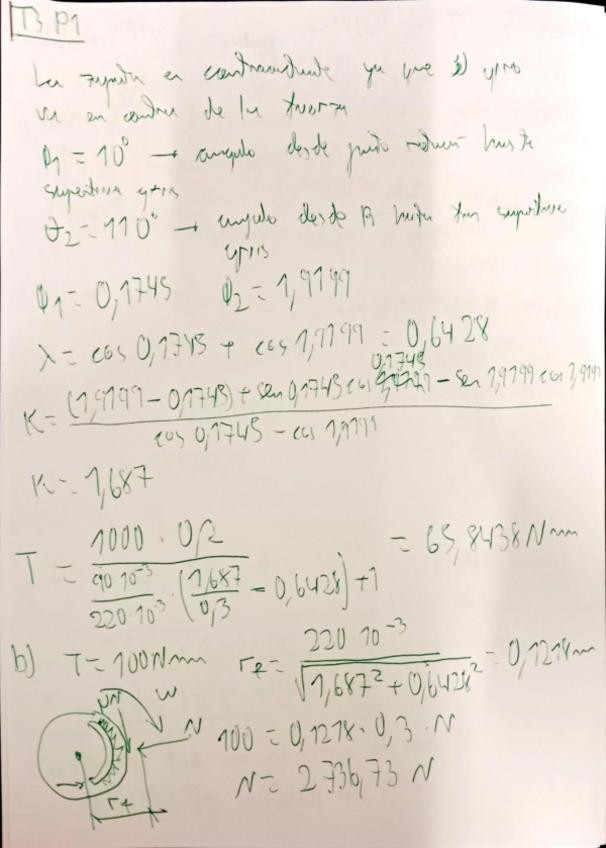 T3 P1
La zapata es contrarrotante ya que el giro
va en contra de la fuerza
θ1 = 10° → angulo desde punto hasta
superficie gris
θ2 = 110° → angulo desde A hasta fin superficie
gris
θ1 = 0,1745 θ2 = 1,9199
λ = cos 0,1745 + cos 1,9199 = 0,6428
K = ((1,9199 - 0,1745) + sen 0,1745 cos 0,1745 - sen 1,9199 cos 1,9199) / (cos 0,1745 - cos 1,9199)
K = 1,687
T = (1000 · 0,2) / (90·10⁻³ / 220·10⁻³ · (1,687 / 0,3 - 0,6428) + 1) = 65,8438 Nmm
b) T = 100 Nmm rf = 220·10⁻³ / √(1,687² + 0,6428²) = 0,1218m
μN ω N
rf
100 = 0,1218 · 0,3 · N
N = 2736,73 N